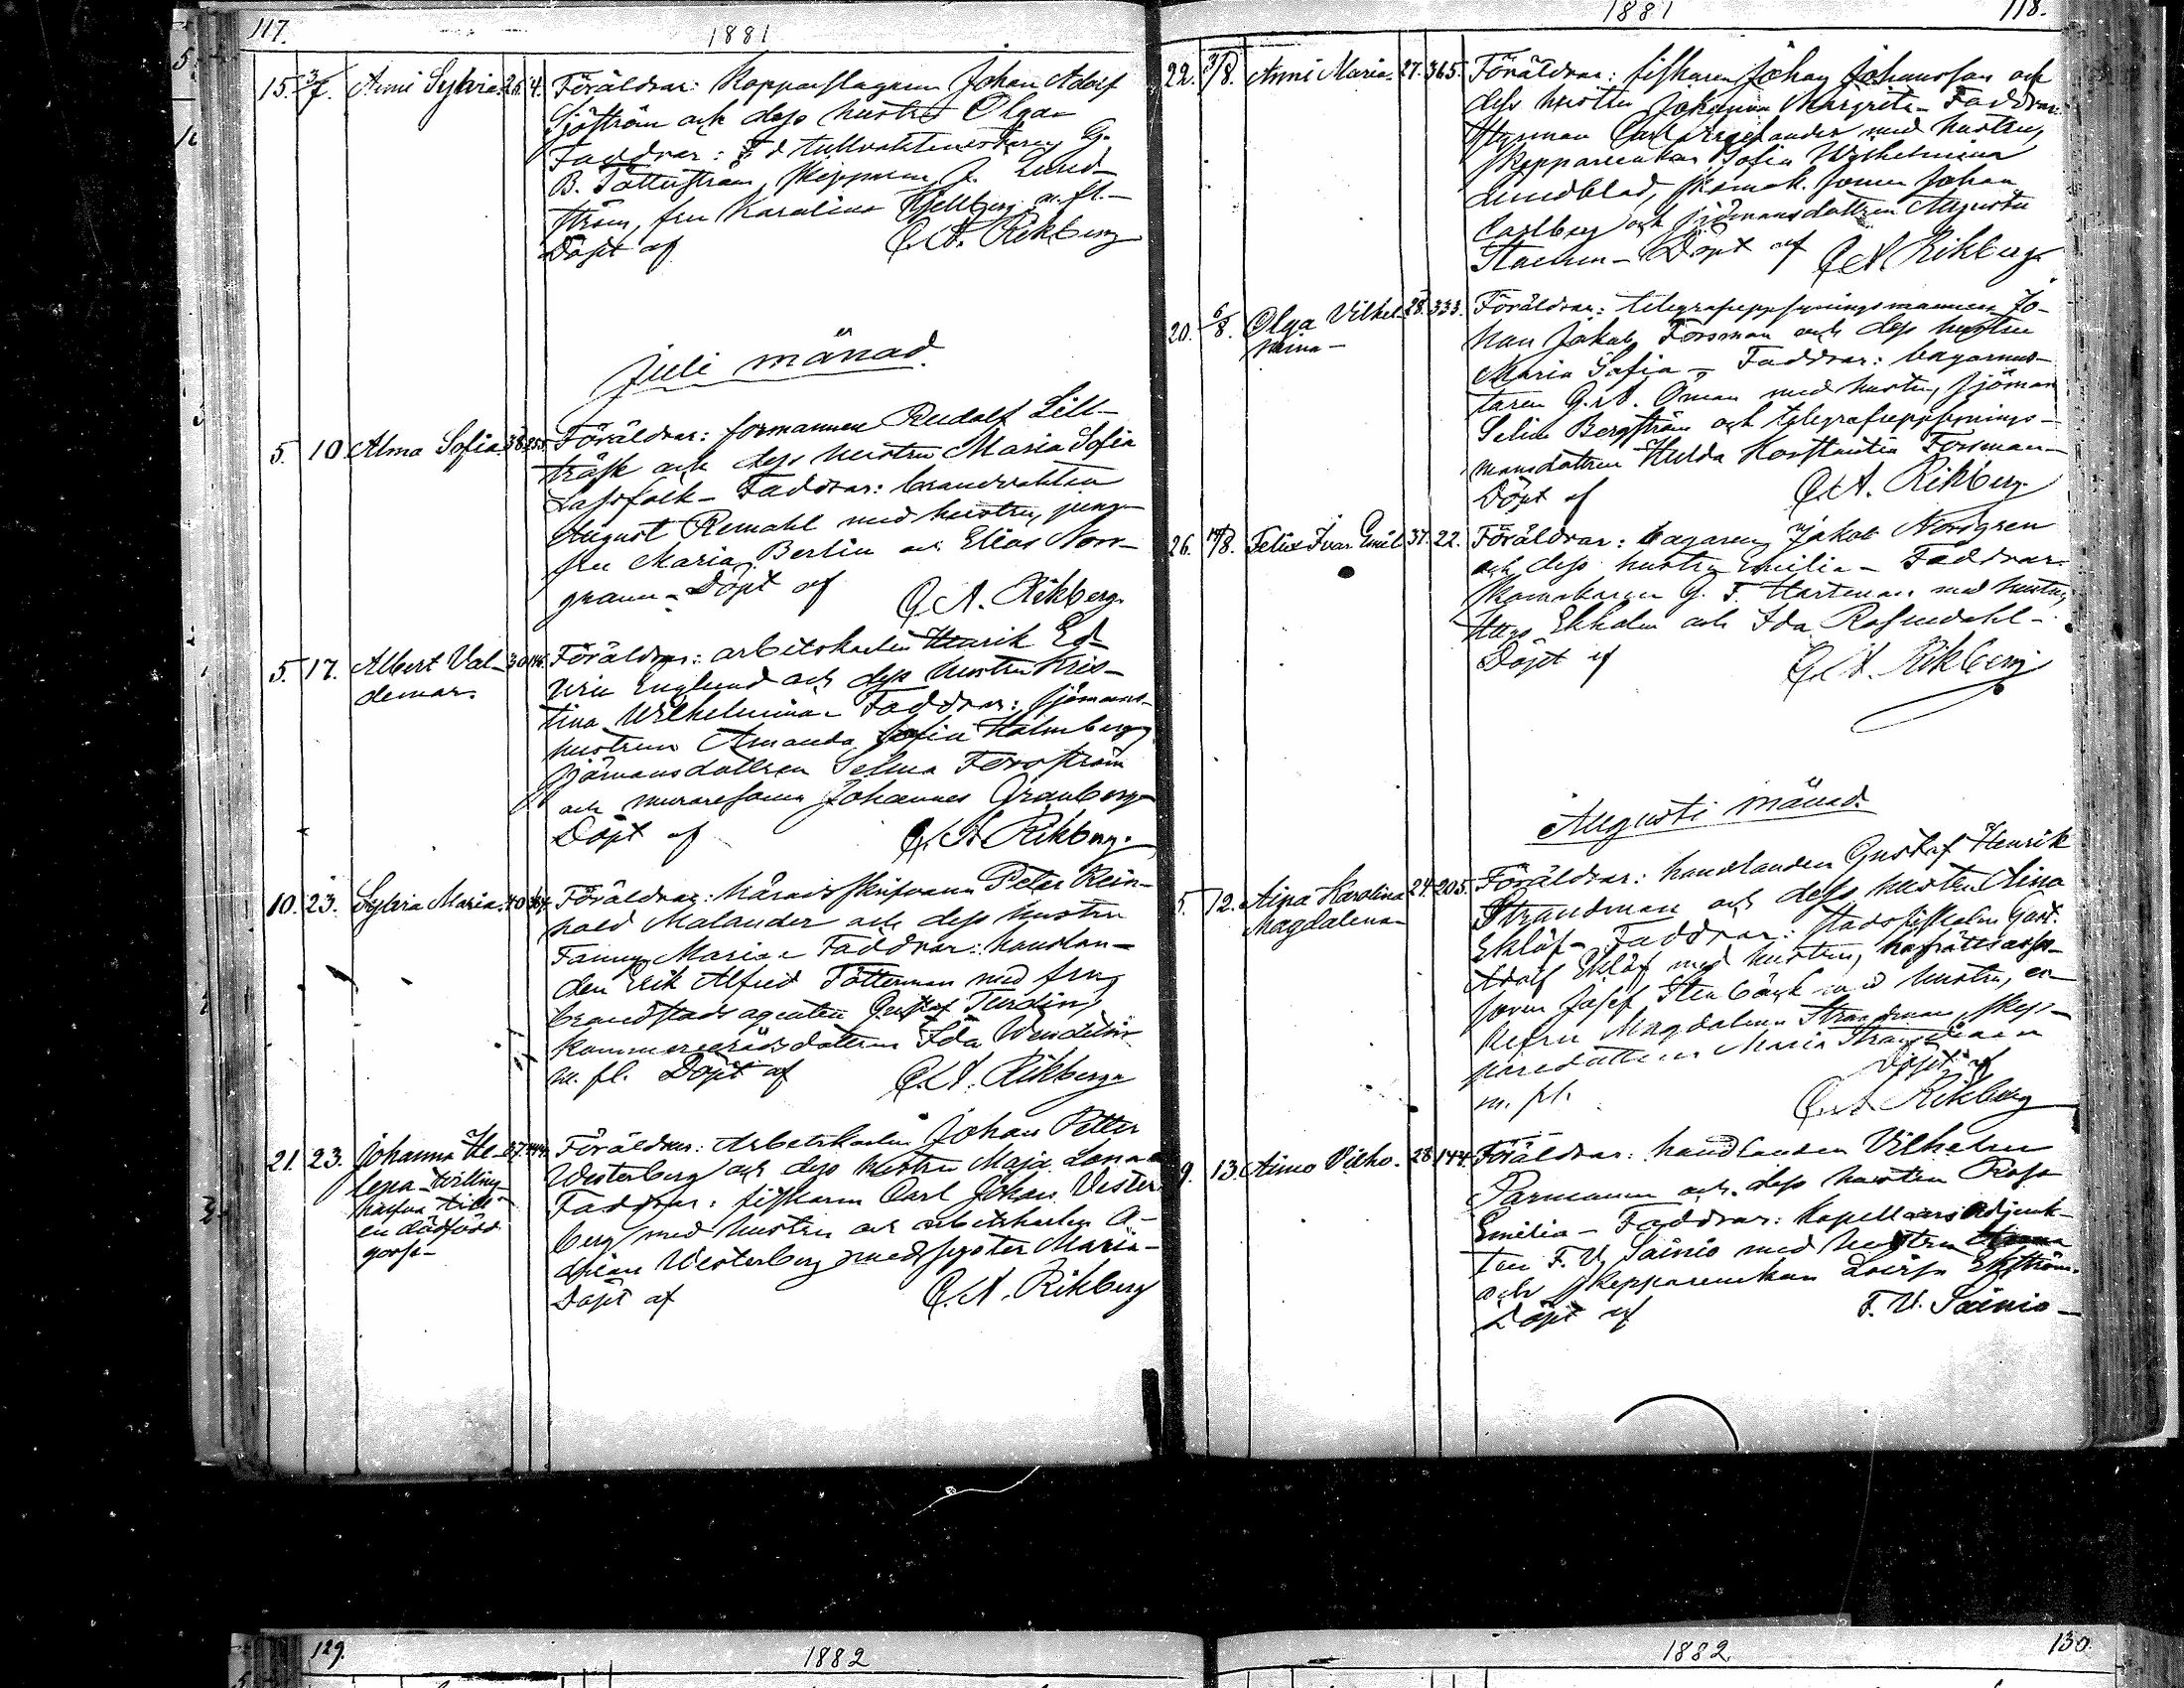 117.
1881
15. 3/7. Anni Sylvia. 26. 4. Föräldrar: Kopparslagaren Johan Adolf
Sjöström och dess hustru Olga-
Faddrar: F d tullvaktmästaren G.
B. Tötterström, skepparen J. Lund-
ström, fru Karolina Kjellberg m. fl.-
Döpt af G. A. Rikberg
Juli månad.
5. 10 Alma Sofia. 38. 255. Föräldrar: formannen Rudolf Lill-
träsk och dess hustru Maria Sofia
Lassfolk- Faddrar: brandvakten
August Remahl med hustru, jung-
fru Maria Berlin och Elias Norr-
grann- Döpt af G. A. Rikberg.
5. 17. Albert Val- 30 Föräldrar: arbetskarlen Henrik Ed-
demar. vin Englund och dess hustru Kris-
tina Wilhelmina- Faddrar: sjömans-
hustrun Amanda Sofia Holmberg,
sjömansdottren Selma Forsström
och muraresonen Johannes Granberg-
Döpt af G. A. Rikberg.
10. 23. Sylvia Maria. 40 Föräldrar: häradsskrifvaren Peter Rein-
hold Malander och dess hustru
Fanny Maria- Faddrar: handlan-
den Erik Alfred Tötterman med fru,
brandstadsagenten Gustaf Turdin,
kommerserådsdottren Ida Wendelin
m. fl. Döpt af G. A. Rikberg-
21. 23. Johanna He- 37 Föräldrar: Arbetskarlen Johan Petter
lena- tvilling- Westerberg och dess hustru Maja Lena-
hafva till Faddrar: fiskaren Carl Johan Wester-
en dödfödd berg med hustru och arbetskarlen A-
gosse- drian Westerberg med syster Maria-
Döpt af G. A. Rikberg
1881
118.
22. 3/8. Anni Maria. 27. 365. Föräldrar: fiskaren Johan Johansson och
dess hustru Johanna Margreta- Faddrar:
Styrman Carl Argelander med hustru,
skepparenkan Sofia Wilhelmina
Lundblad, skomak. sonen Johan
Carlberg och sjömansdottren Augusta
Döpt af G A Rikberg-
20. 6/8. Olga Vilhel- 28. 333. Föräldrar: telegrafuppsyningsmannen Jo-
mina- han Jakob Forsman och dess hustru
Maria Sofia- Faddrar: bagarmäs-
taren G. A. Öman med hustru, sjöman
Selim Bergström och telegrafuppsynings-
mansdottren Hulda Konstantia Forsman-
Döpt af G. A. Rikberg
26. 14/8. Felix Ivar Emil 37. 22. Föräldrar: bagaren Jakob Norrgren
och dess hustru Emilia- Faddrar:
Skomakaren G. F. Hartman med hustru,
Ekholm och Ida Rosendahl-
Döpt af G. A. Rikberg
Augusti månad.
5. 12. Aina Karolina 24. 205. Föräldrar: handlanden Gustaf Henrik
Magdalena- Strandman och dess hustru Aina
Eklöf- Faddrar: stadsfiskalen Gust.
Adolf Eklöf med hustru, hofrättsasses-
soren Josef Stenbäck med hustru, en-
kefru Magdalena Strandman, skep-
paredottren Maria Strandman
m. fl. Döpt af
G. A. Rikberg
9. 13. Aimo Vilho. 28. 144. Föräldrar: handlanden Vilhelm
Parmanen och dess hustru Rosa
Emilia- Faddrar: Kapellansadjunk-
ten F. V. Sainio med hustru
och skepparenkan Lovisa Ekström.
Döpt af F. V. Sainio-
129.
1882
1882
130.